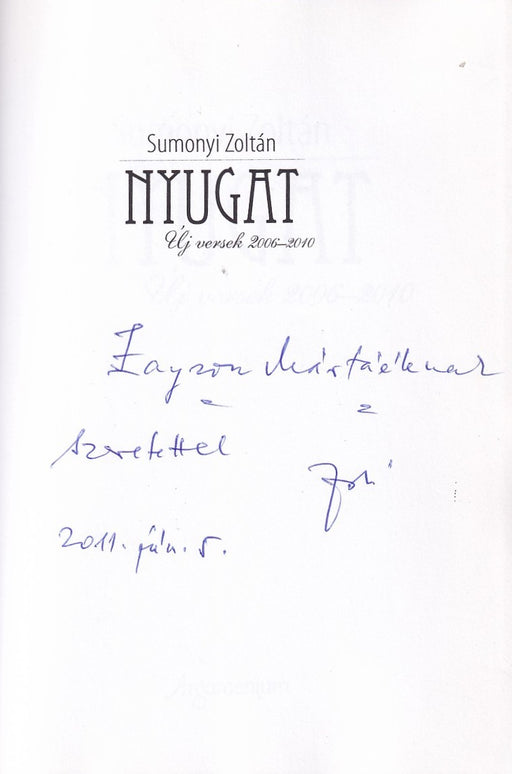 Sumonyi Zoltán
NYUGAT
Új versek 2006–2010
Zayzon Máriáéknak
szeretettel
Zoli
2011. jún. 5.
Argumentum